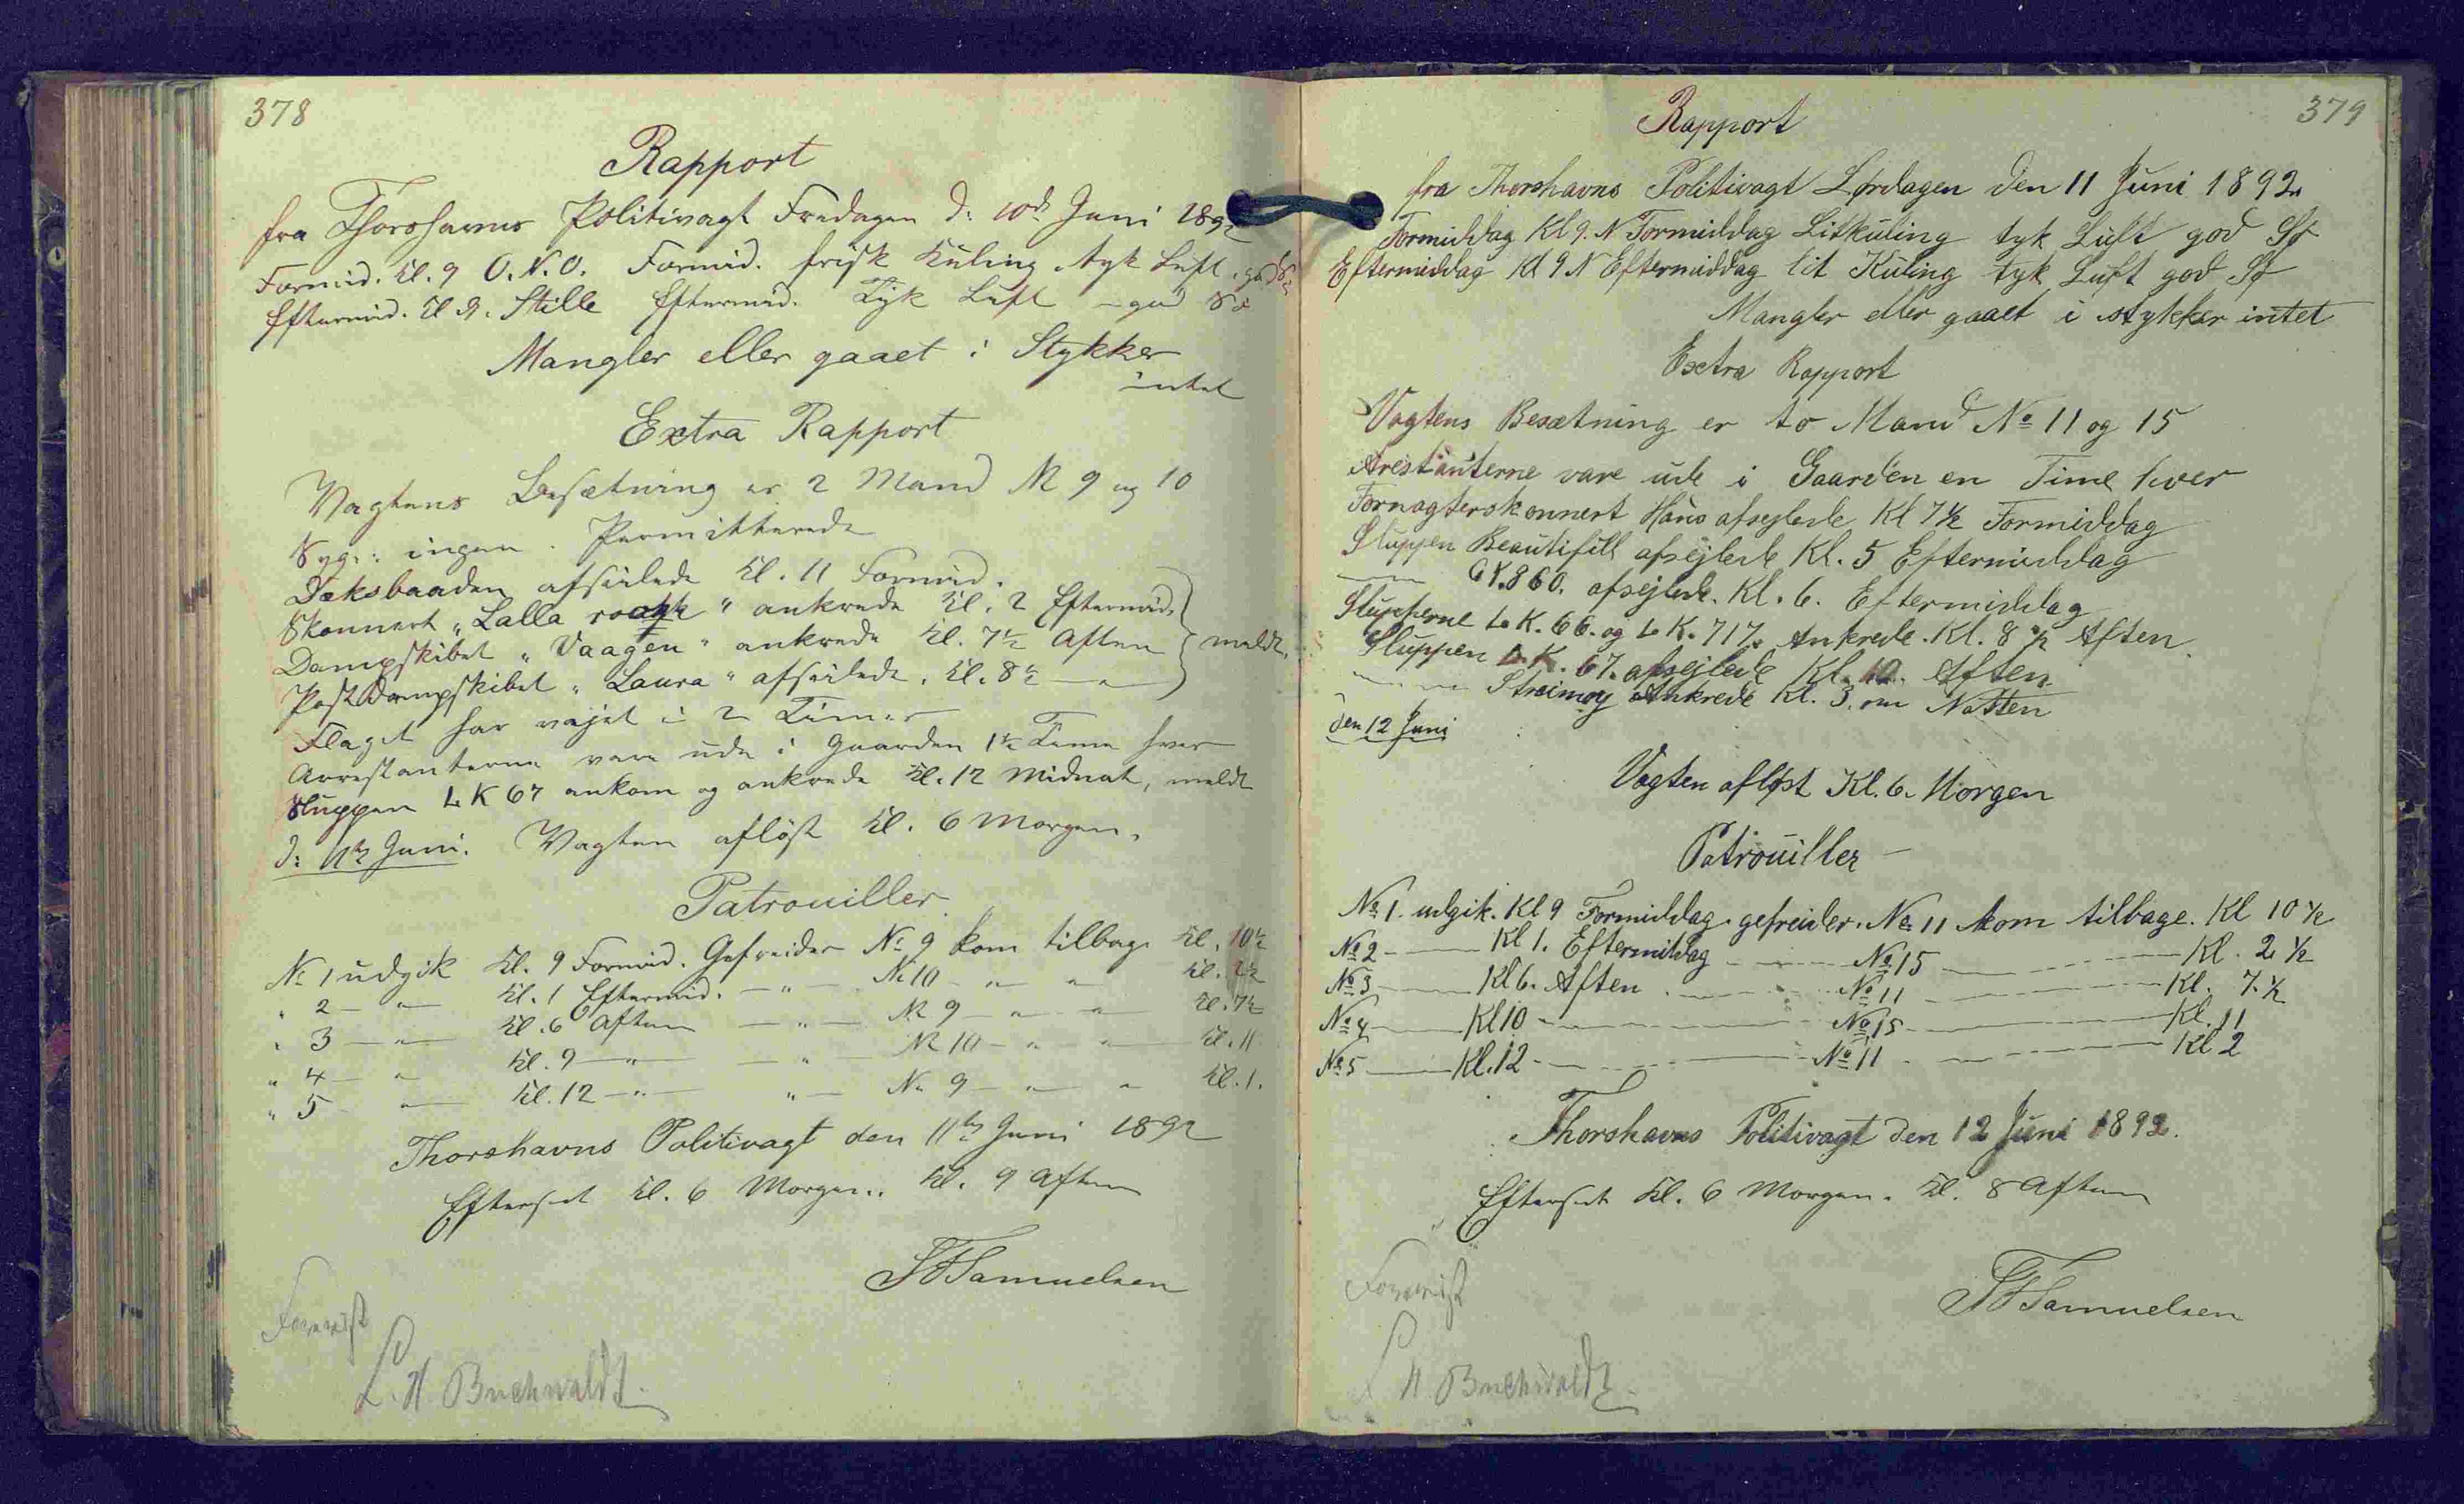 378
Rapport
fra Thorshavns Politivagt Fredagen d: 10d Juni 1892
Formid. Kl. 9 O.N.O. Formid. frisk Kuling tyk Luft. god Sø
Eftermid. Kl 9. Stille Eftermid. Tyk Luft - god Sø
Mangler eller gaaet i Stykker
intet
Extra Rapport
Vagtens Besætning er 2 Mand N 9 og 10
Syge: ingen. Permitterede
Dæksbaaden afseilede Kl. 11 Formid.
Skonnert "Lalla roakh" ankrede Kl. 2 Eftermid.
Dampskibet "Vaagen" ankrede Kl. 7½ Aften } meldt.
Postdampskibet "Laura" afseilede. Kl. 8½ — " —
Flaget har vajet i 2 Timer
Arrestanterne vare ude i Gaarden 1½ Time hver
Sluppen L K 67 ankom og ankrede Kl. 12 Midnat, meldt
d: 11te Juni. Vagten afløst Kl. 6 Morgen.
Patrouiller
No 1 udgik Kl. 9 Formid. Gefreider No 9 kom tilbage Kl. 10½
" 2 — " — Kl. 1 Eftermid. — " — No 10 — " — " Kl. 2½
" 3 — " — Kl. 6 Aften — " — N 9 — " — " Kl. 7½
" 4 — " Kl. 9 — " — — " — N 10 — " — " Kl. 11
" 5 " — Kl. 12 — " — " — No 9 — " — " Kl. 1.
Thorshavns Politivagt den 11te Juni 1892
Efterset Kl. 6 Morgen.. Kl. 9 Aften
Samuelsen
Forevist
L. H. Buchwaldt
379
Rapport
fra Thorshavns Politivagt Lørdagen den 11 Juni 1892
Formiddag Kl 9. N Formiddag Litkuling tyk Luft god Sø
Eftermiddag Kl 9 N Eftermiddag lit Kuling tyk Luft god Sø
Mangler eller gaaet i stykker intet
Extra Rapport
Vagtens Besætning er to Mand No 11 og 15
Arestanterne vare ude i Gaarden en Time hver
Fornagterskonnert Hans afsejlede Kl 7½ Formiddag
Sluppen Beautifull afsejlede Kl. 5 Eftermiddag
— GY. 860. afsejlede. Kl. 6. Eftermiddag
Slupperne L K. 66. og L K. 717. Ankrede. Kl. 8 ½ Aften.
Sluppen L. K. 67. afsejlede Kl. 10. Aften.
— Streimoy Ankrede Kl. 3. om Natten
den 12 Juni
Vagten afløst Kl. 6. Morgen
Patrouiller
No 1. udgik. Kl 9 Formiddag. gefreider. No 11 kom tilbage. Kl 10 ½
No 2 — Kl 1. Eftermiddag — No 15 — Kl. 2 ½
No 3 — Kl 6. Aften — No 11 — Kl. 7. ½
No 4 — Kl 10 — No 15 — Kl. 11
No 5 — Kl. 12 — No 11 — Kl 2
Thorshavns Politivagt den 12 Juni 1892.
Efterset Kl. 6 Morgen. Kl. 8 Aften
Samuelsen
Forevist
L H. Buchwaldt